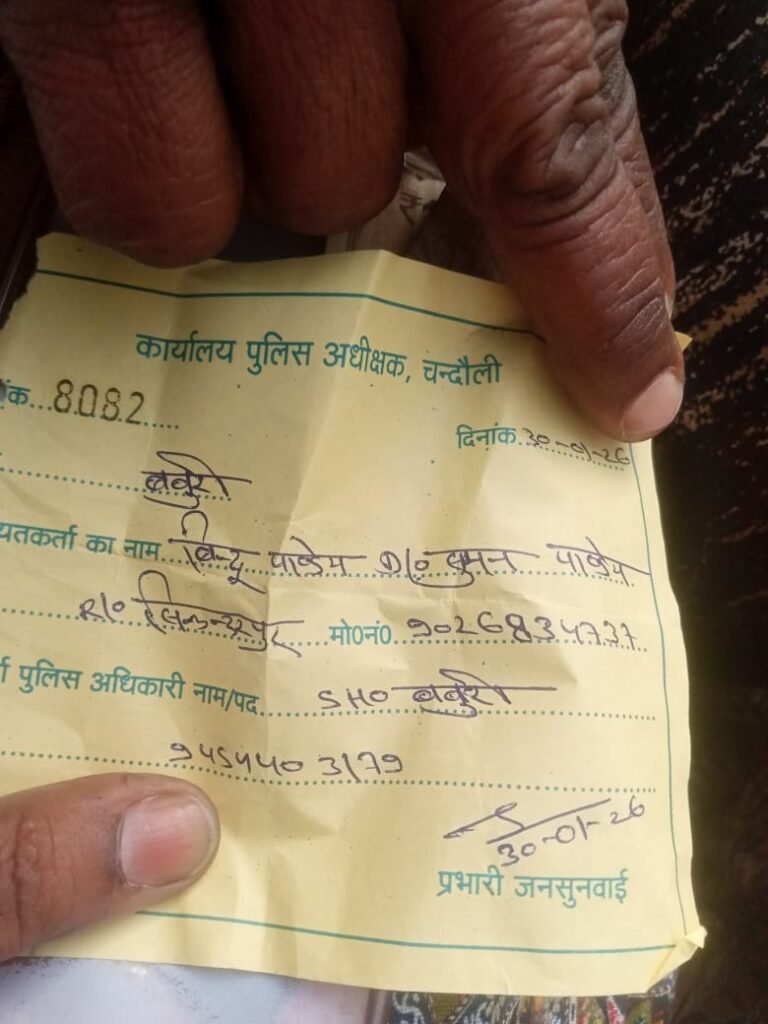 कार्यालय पुलिस अधीक्षक, चन्दौली
क...8082.....
दिनांक.30-01-26
बबुरी
यतकर्ता का नाम. बिन्दू पाण्डेय D/० सुमन पाण्डेय
R/० सिकन्दरपुर मो0नं0. 9026834737
पुलिस अधिकारी नाम/पद SHO बबुरी
9454403179
30-01-26
प्रभारी जनसुनवाई